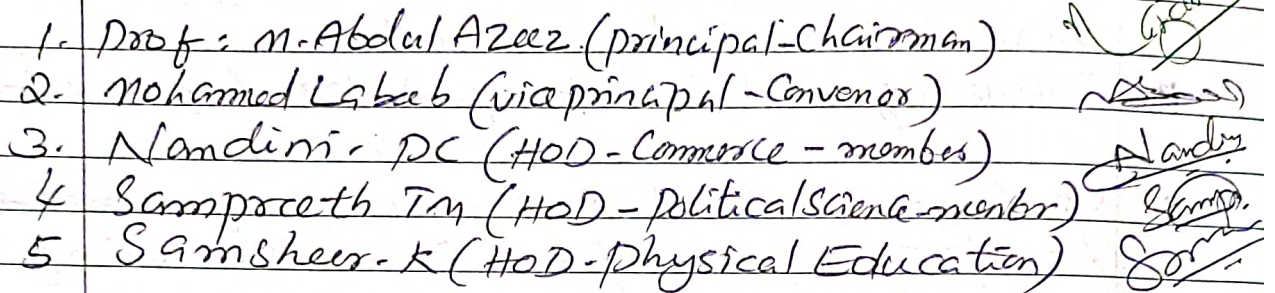 1. Prof: M. Abdul Azeez (principal-Chairman)
2. Mohammed Labeeb (vice principal-Convenor)
3. Nandini. PC (HOD-Commerce-member) Nandin
4 Sampreeth TM (HOD-Political Science-member)
5 Samsheer. K (HOD-Physical Education)